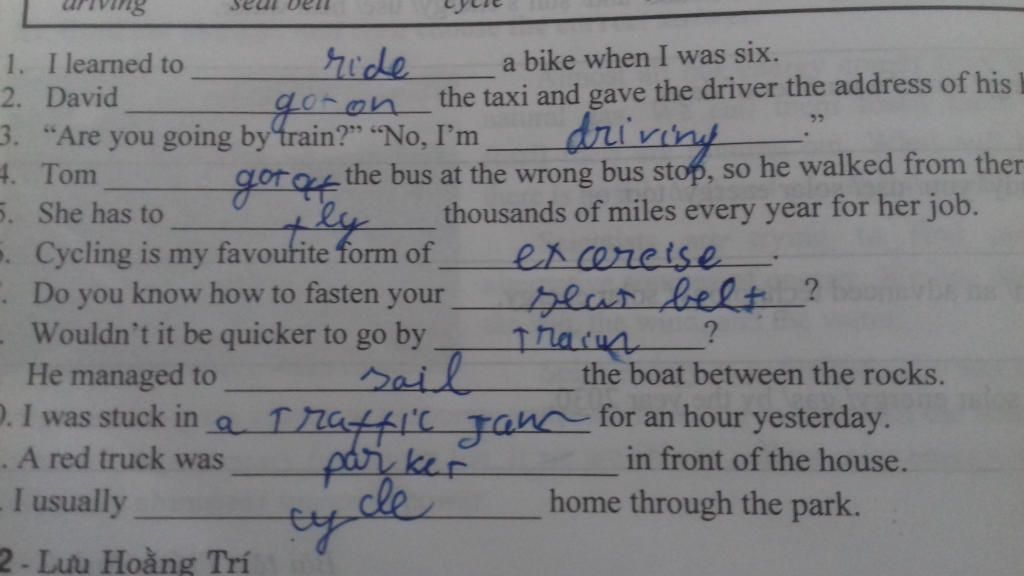 driving seat belt cycle
1. I learned to ride a bike when I was six.
2. David got on the taxi and gave the driver the address of his
3. “Are you going by train?” “No, I’m driving.”
4. Tom got off the bus at the wrong bus stop, so he walked from ther
5. She has to fly thousands of miles every year for her job.
Cycling is my favourite form of exercise.
Do you know how to fasten your seat belt?
Wouldn’t it be quicker to go by train?
He managed to sail the boat between the rocks.
0. I was stuck in a traffic jam for an hour yesterday.
. A red truck was parket in front of the house.
. I usually cycle home through the park.
2 - Lưu Hoằng Trí